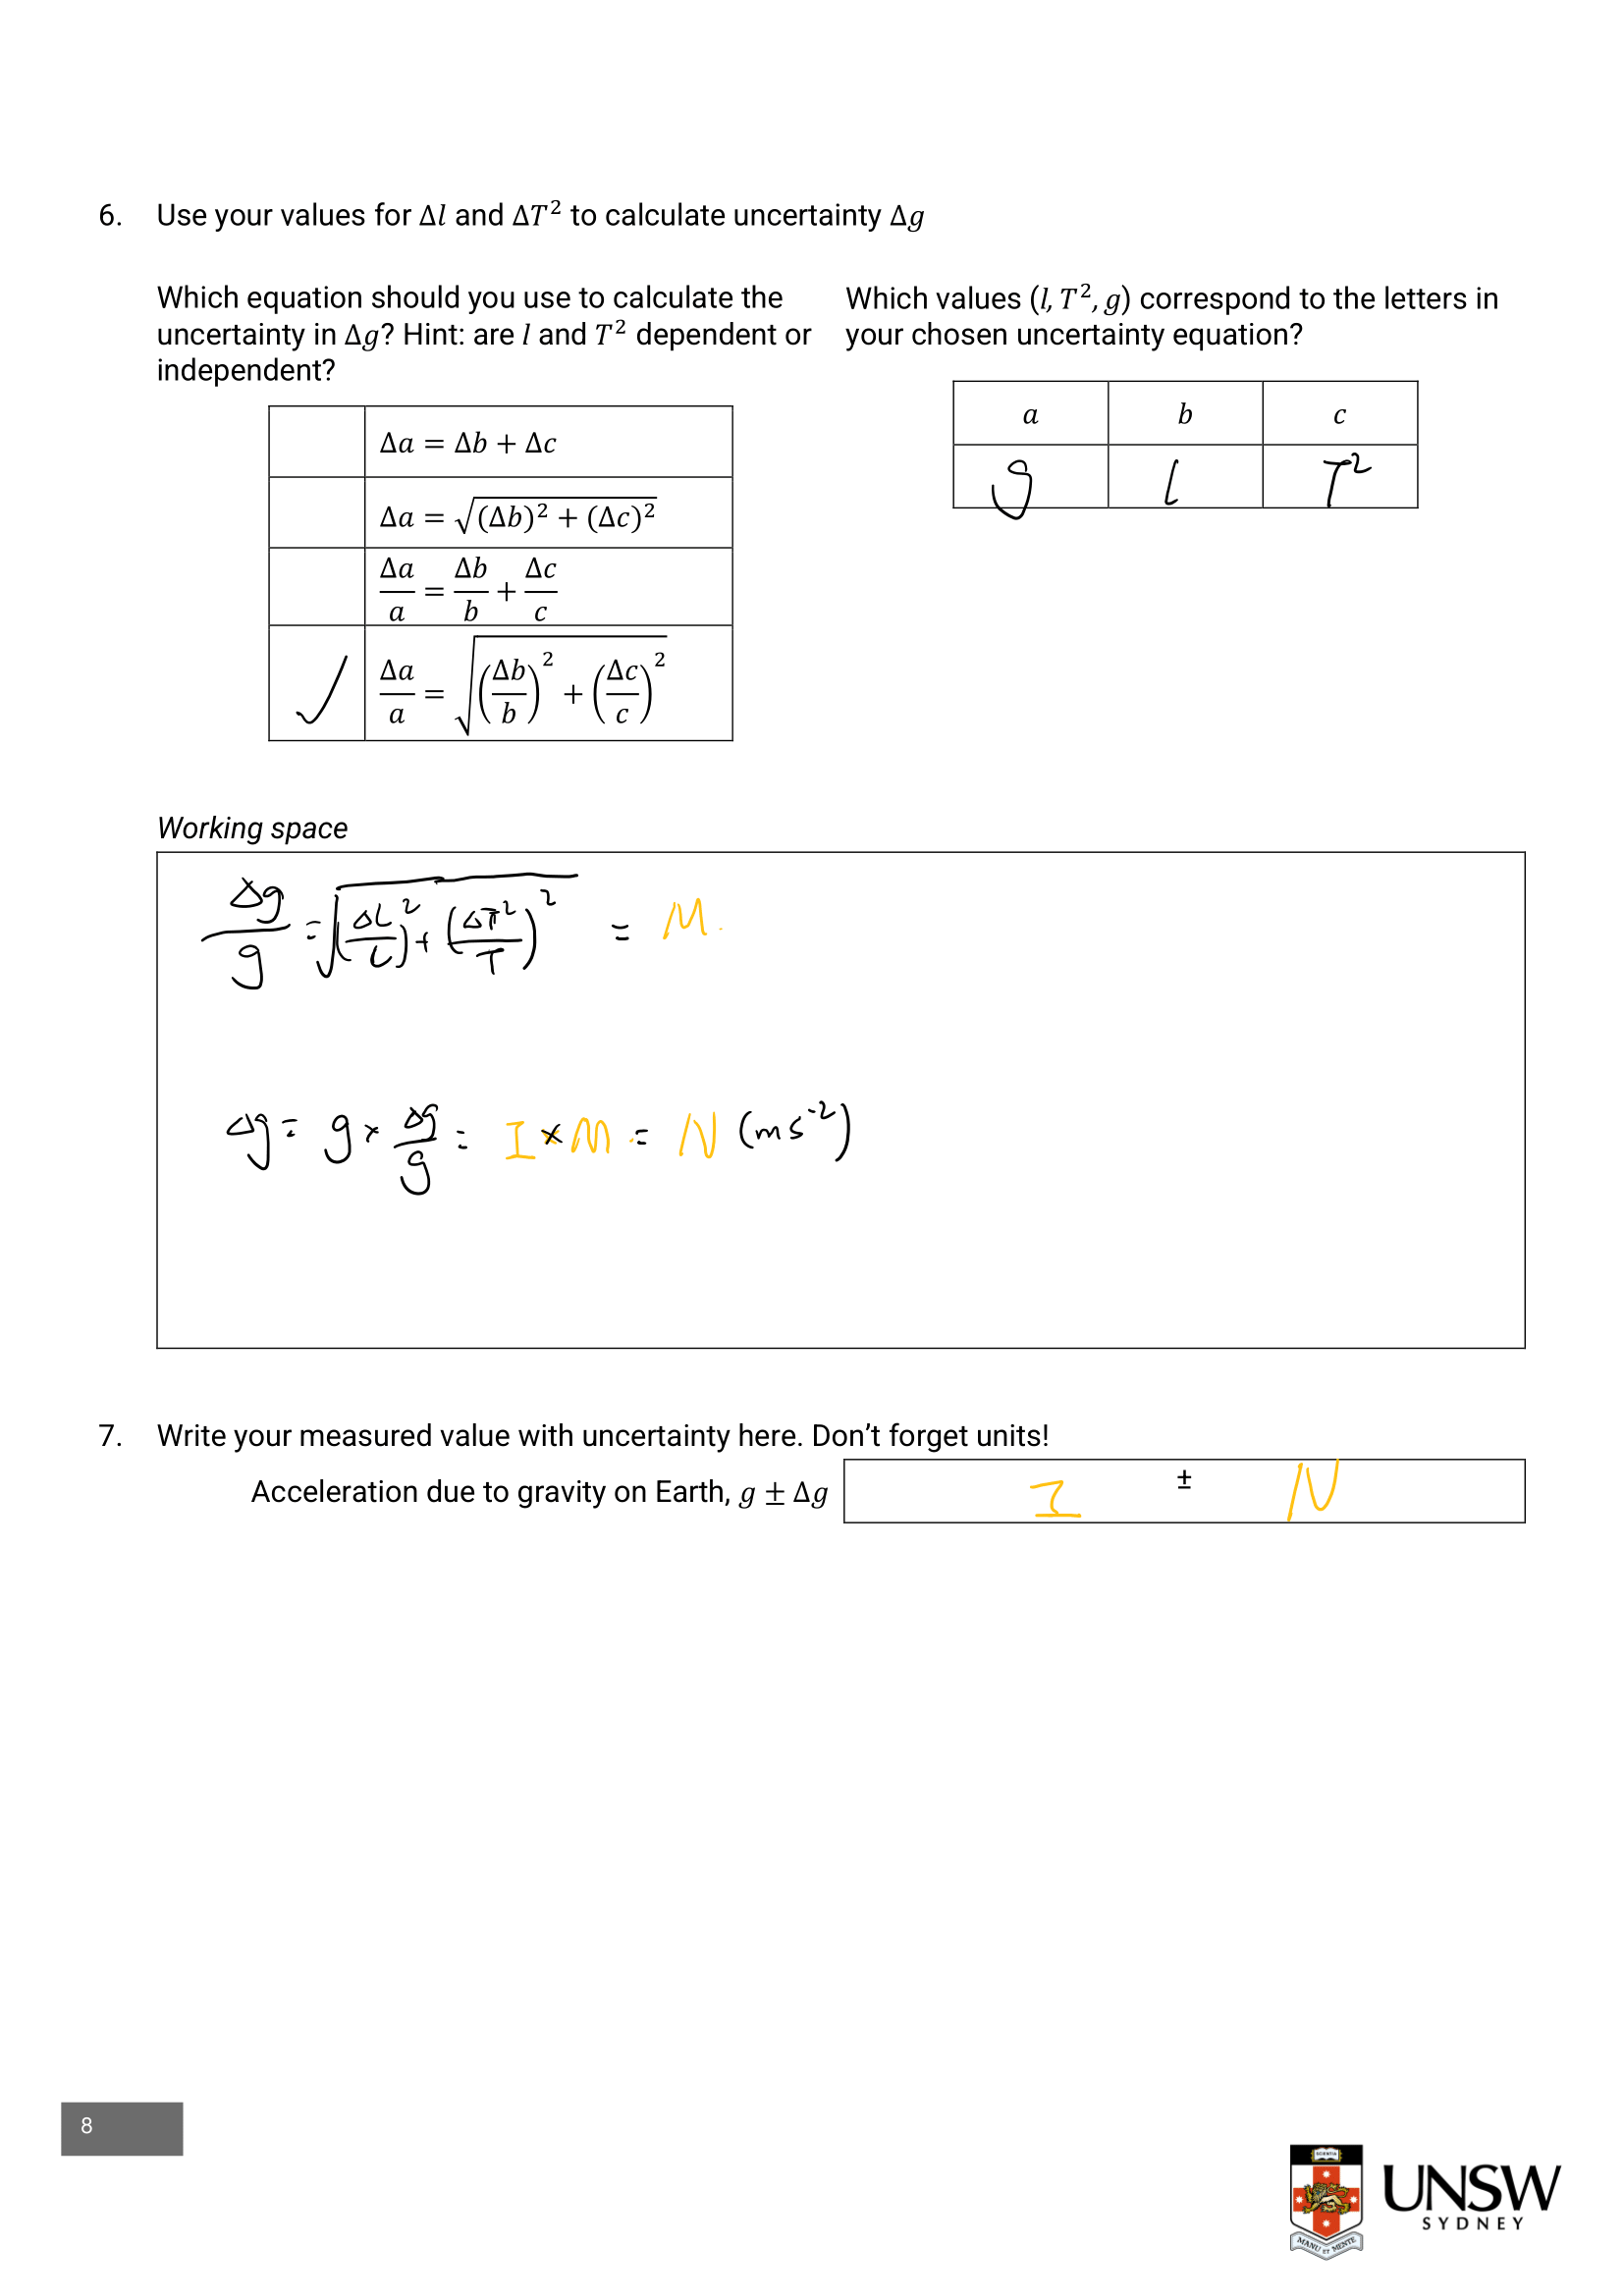 6. Use your values for Δl and ΔT² to calculate uncertainty Δg
Which equation should you use to calculate the
uncertainty in Δg? Hint: are l and T² dependent or
independent?
Δa = Δb + Δc
Δa = √((Δb)² + (Δc)²)
Δa/a = Δb/b + Δc/c
✓ Δa/a = √((Δb/b)² + (Δc/c)²)
Which values (l, T², g) correspond to the letters in
your chosen uncertainty equation?
a b c
g l T²
Working space
Δg/g = √((ΔL/L)² + (ΔT²/T)²) = M.
Δg = g × Δg/g = I × M = N (ms⁻²)
7. Write your measured value with uncertainty here. Don’t forget units!
Acceleration due to gravity on Earth, g ± Δg I ± N
8
SCIENTIA
MANU ET MENTE
UNSW
SYDNEY